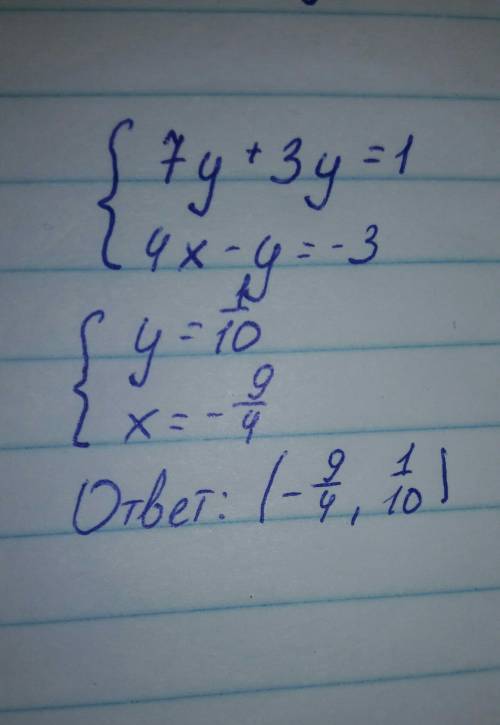 7y + 3y = 1
4x - y = -3
y = 1/10
x = - 9/4
Ответ: (- 9/4, 1/10)